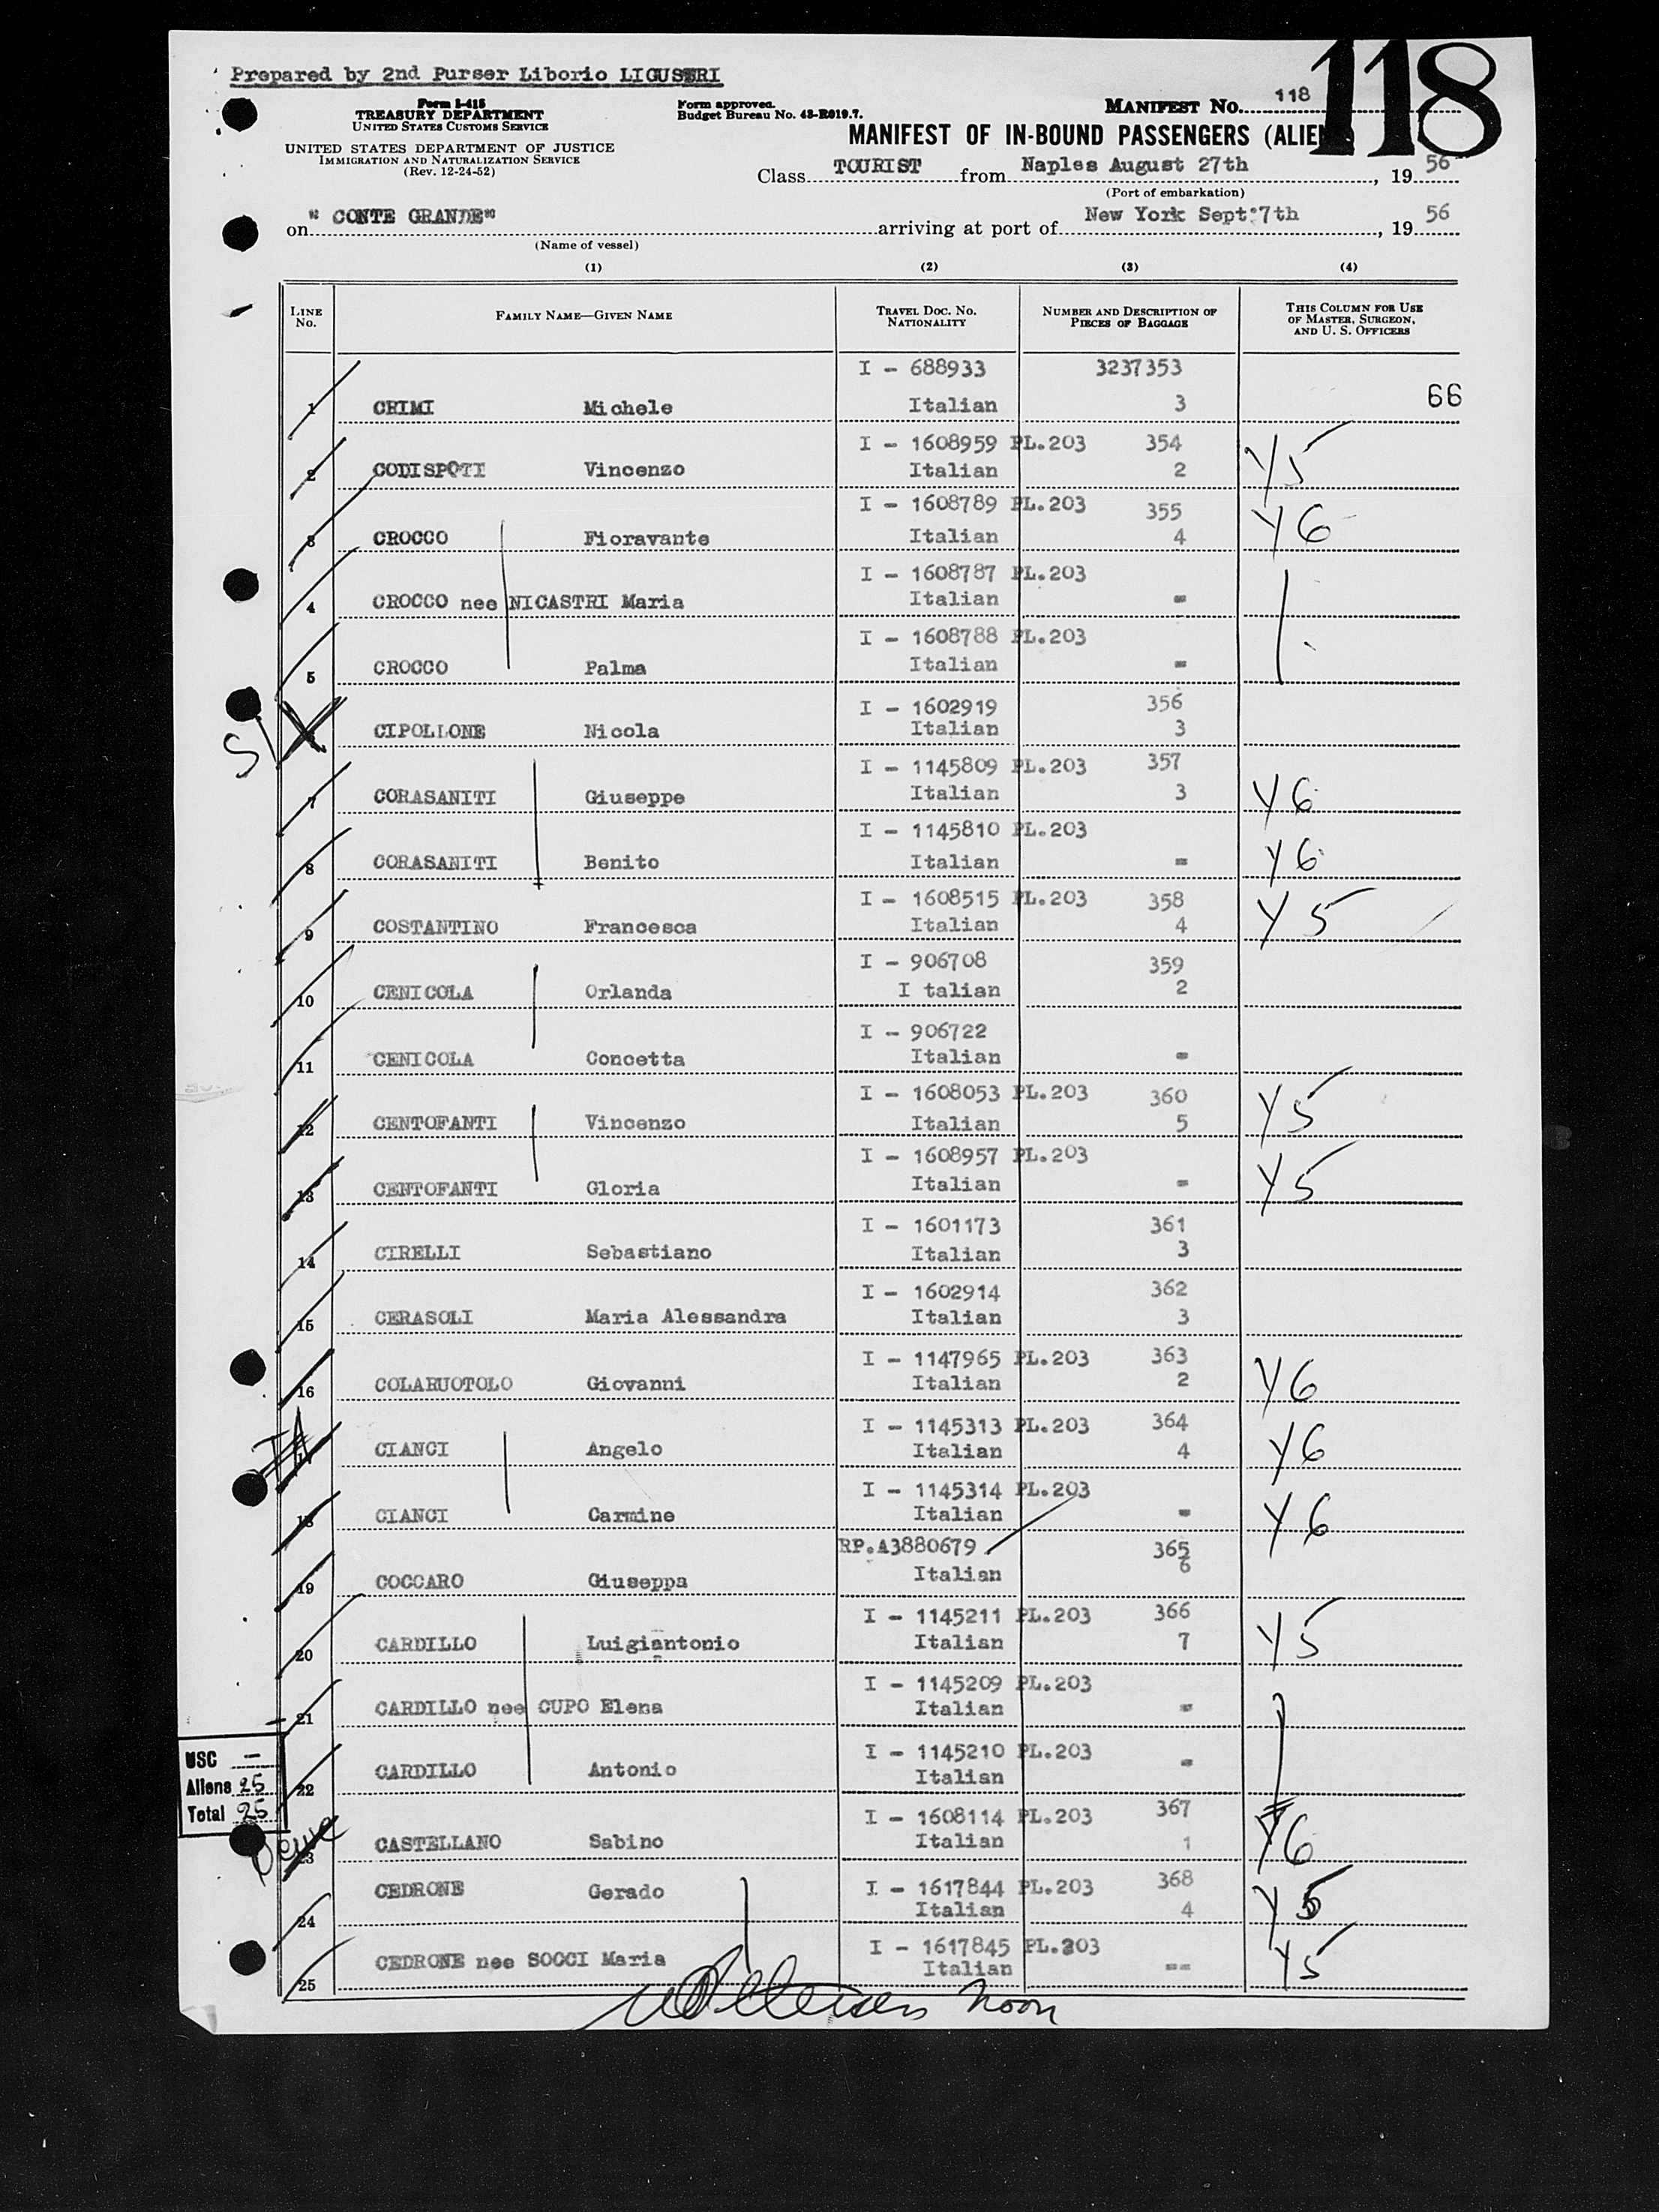 Prepared by 2nd Purser Liborio LIGUSTRI
118
Form I-415
TREASURY DEPARTMENT
UNITED STATES CUSTOMS SERVICE
UNITED STATES DEPARTMENT OF JUSTICE
IMMIGRATION AND NATURALIZATION SERVICE
(Rev. 12-24-52)
Form approved.
Budget Bureau No. 43-R019.7.
MANIFEST No. 118
MANIFEST OF IN-BOUND PASSENGERS (ALIEN
Class TOURIST from Naples August 27th, 19 56
(Port of embarkation)
on " CONTE GRANDE" arriving at port of New York Sept. 7th, 19 56
(Name of vessel)
(1) (2) (3) (4)
LINE No. FAMILY NAME—GIVEN NAME TRAVEL DOC. NO. NATIONALITY NUMBER AND DESCRIPTION OF PIECES OF BAGGAGE THIS COLUMN FOR USE OF MASTER, SURGEON, AND U. S. OFFICERS
I - 688933 3237353
1 CRIMI Michele Italian 3 66
I - 1608959 PL.203 354
2 CODISPOTI Vincenzo Italian 2 Y5
I - 1608789 PL.203 355
3 CROCCO Fioravante Italian 4 Y6
I - 1608787 PL.203
4 CROCCO nee NICASTRI Maria Italian -
I - 1608788 PL.203
5 CROCCO Palma Italian -
I - 1602919 356
SI CIPOLLONE Nicola Italian 3
I - 1145809 PL.203 357
7 CORASANITI Giuseppe Italian 3 Y6
I - 1145810 PL.203
8 CORASANITI Benito Italian - Y6
I - 1608515 PL.203 358
9 COSTANTINO Francesca Italian 4 Y5
I - 906708 359
10 CENICOLA Orlanda I talian 2
I - 906722
11 CENICOLA Concetta Italian -
I - 1608053 PL.203 360
12 CENTOFANTI Vincenzo Italian 5 Y5
I - 1608957 PL.203
13 CENTOFANTI Gloria Italian - Y5
I - 1601173 361
14 CIRELLI Sebastiano Italian 3
I - 1602914 362
15 CERASOLI Maria Alessandra Italian 3
I - 1147965 PL.203 363
16 COLARUOTOLO Giovanni Italian 2 Y6
I - 1145313 PL.203 364
CIANCI Angelo Italian 4 Y6
I - 1145314 PL.203
18 CIANCI Carmine Italian - Y6
RP.A3880679 365
19 COCCARO Giuseppa Italian 6
I - 1145211 PL.203 366
20 CARDILLO Luigiantonio Italian 7 Y5
I - 1145209 PL.203
21 CARDILLO nee CUPO Elena Italian -
I - 1145210 PL.203
22 CARDILLO Antonio Italian -
USC —
Aliens 25
Total 25
I - 1608114 PL.203 367
23 CASTELLANO Sabino Italian 1 Y6
I - 1617844 PL.203 368
24 CEDRONE Gerado Italian 4 Y5
I - 1617845 PL.203
25 CEDRONE nee SOCCI Maria Italian -- Y5
noon